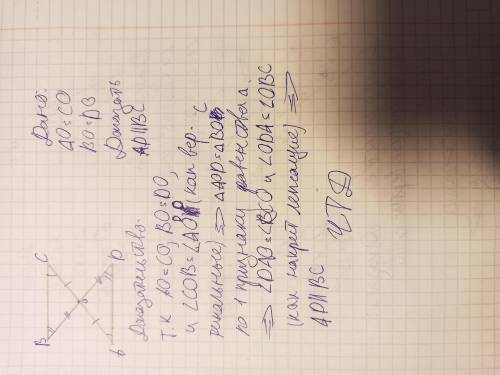 B C
O
D
Дано:
AO=CO
BO=DO
Доказать
AD||BC
Доказательство:
Т.к AO=CO, BO=DO,
и ∠COB=∠AOD (как вер-
тикальные) => ΔAOD=ΔBOC
по 1 признаку равенства Δ.
=> ∠DAO=∠BCO и ∠ODA=∠OBC
(как накрест лежащие) =>
AD||BC
ЧТД